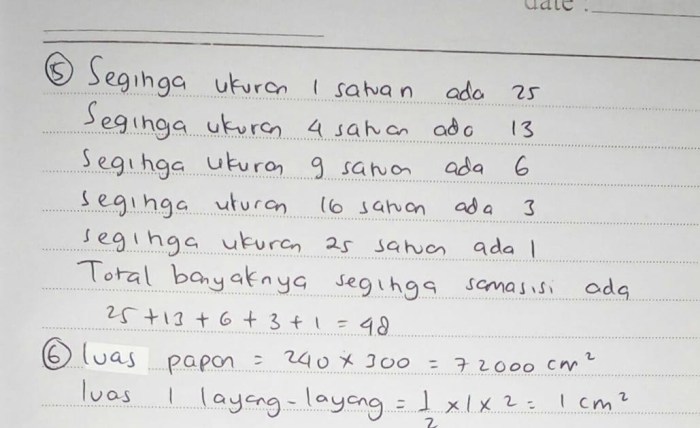 date :
⑤ Seginga ukuran 1 satuan ada 25
Seginga ukuran 4 satuan ada 13
Seginga ukuran 9 satuan ada 6
seginga ukuran 16 satuan ada 3
seginga ukuran 25 satuan ada 1
Total banyaknya seginga samasisi ada
25 + 13 + 6 + 3 + 1 = 48
⑥ luas papan = 240 × 300 = 72000 cm²
luas 1 layang-layang = 1/2 × 1 × 2 = 1 cm²